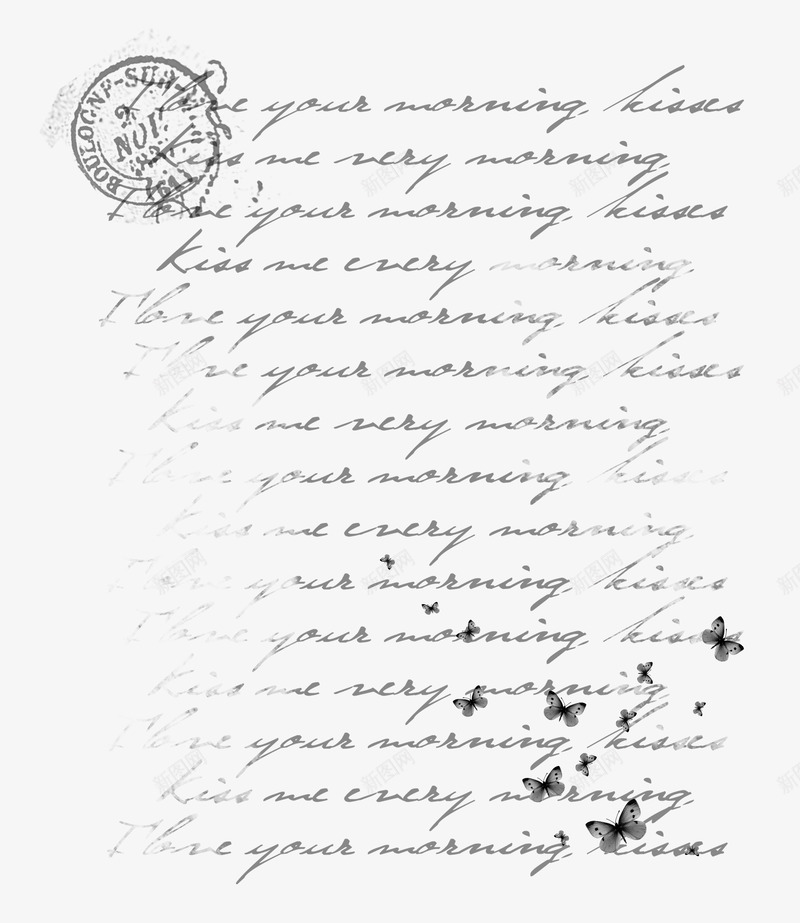 BOULOGNE-SUR-MER
2
NOV
I love your morning, kisses
Kiss me very morning,
I love your morning, kisses
Kiss me every morning,
I love your morning, kisses
I love your morning, kisses
Kiss me very morning,
I love your morning, kisses
Kiss me every morning,
I love your morning, kisses
I love your morning, kisses
Kiss me very morning,
I love your morning, kisses
Kiss me every morning,
I love your morning, kisses